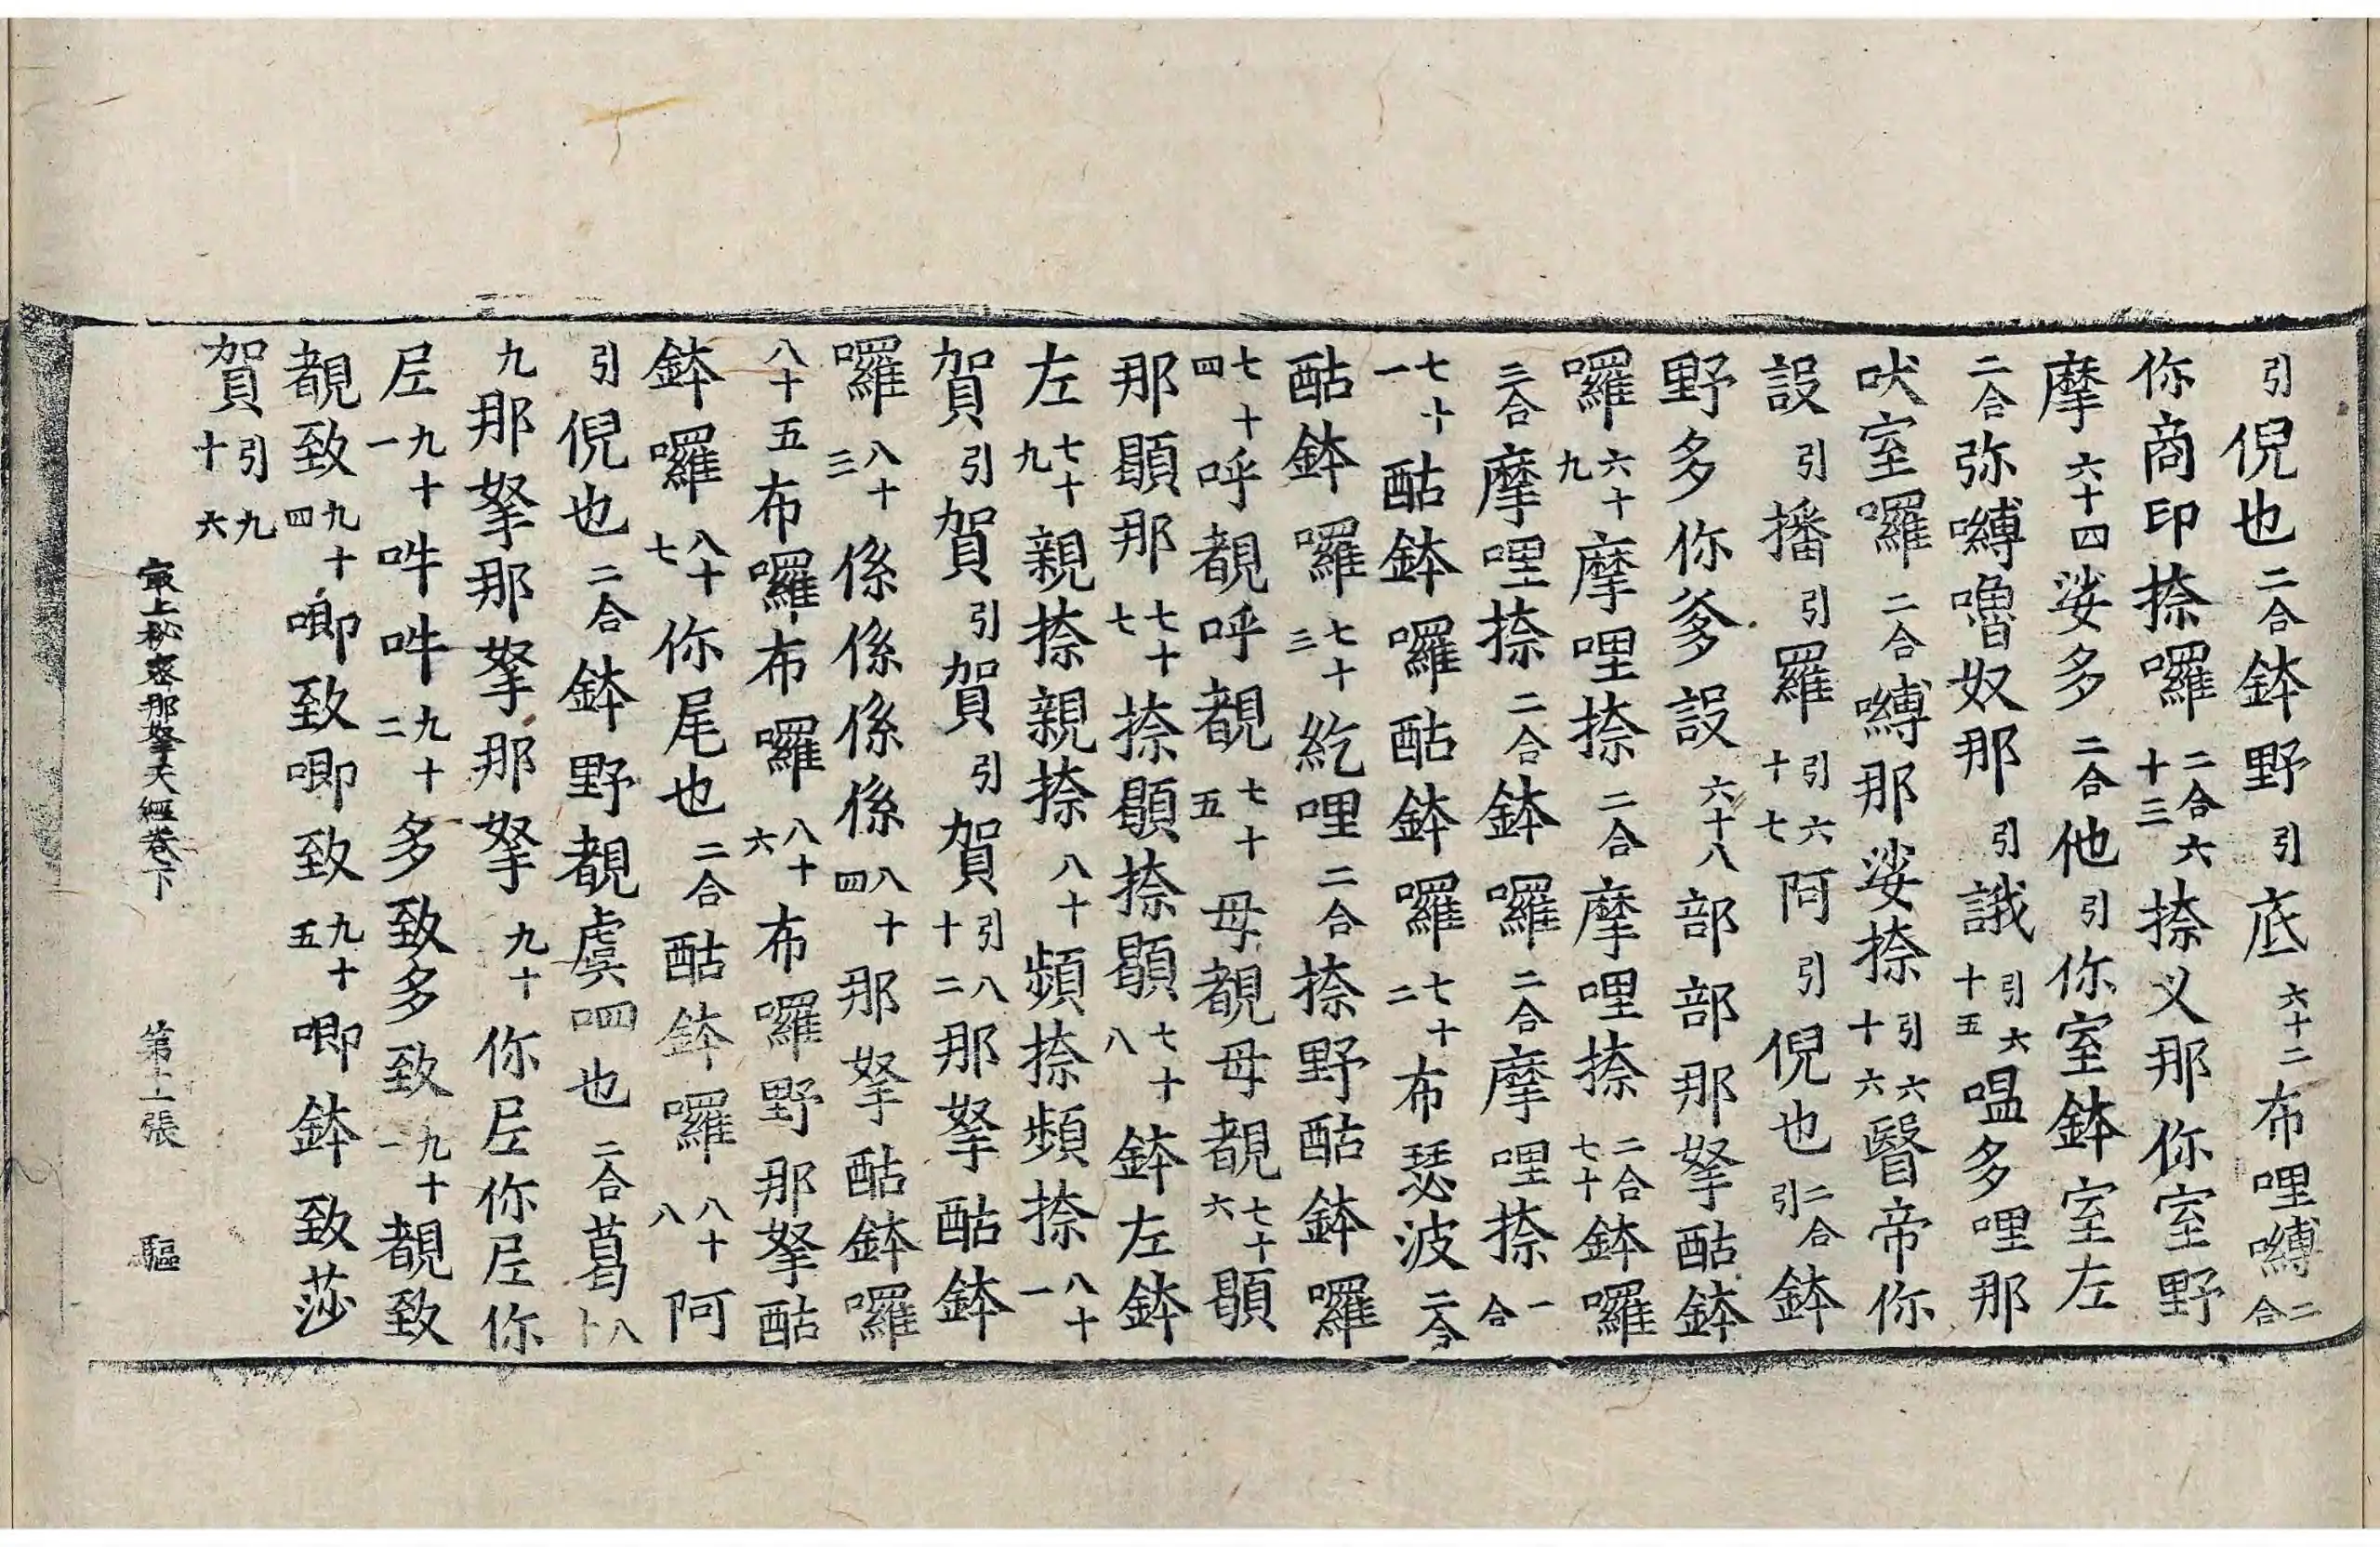 引倪也二合鉢野引底六十二布哩嚩二合
你商印捺囉二合六十三捺义那你室野
摩六十四娑多二合他引你室鉢室左
二合弥嚩嚕奴那引誐引六十五嗢多哩那
吠室囉二合嚩那娑捺引六十六醫帝你
設引播引羅引六十七阿引倪也二合引鉢
野多你爹設六十八部部那拏酤鉢
囉六十九摩哩捺二合摩哩捺二合七十鉢囉
二合摩哩捺二合鉢囉二合摩哩捺二合
七十一酤鉢囉酤鉢囉七十二布瑟波二合
酤鉢囉七十三紇哩二合捺野酤鉢囉
七十四呼覩呼覩七十五母覩母覩七十六顕
那顕那七十七捺顕捺顕七十八鉢左鉢
左七十九親捺親捺八十頻捺頻捺八十一
賀引賀引賀引賀引八十二那拏酤鉢
囉八十三係係係係八十四那拏酤鉢囉
八十五布囉布囉八十六布囉野那拏酤
鉢囉八十七你尾也二合酤鉢囉八十八阿
引倪也二合鉢野覩虞呬也二合葛八十
九那拏那拏那拏九十你𡱝你𡱝你
𡱝九十一吽吽九十二多致多致九十一覩致
覩致九十四唧致唧致九十五唧鉢致莎
賀引九十六
最上秘密那拏天經卷下 第十二張 驅